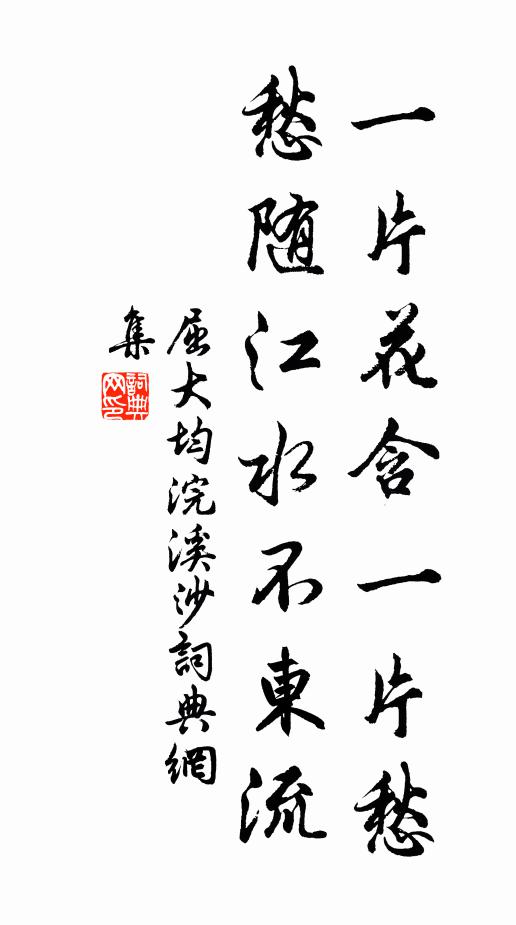 一片花含一片愁
愁随江水不東流
屈大均浣溪沙詞典網
集
詞典
网印